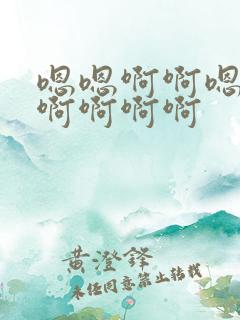 嗯嗯啊啊嗯
啊啊啊啊
黄澄锋
未经同意禁止转载